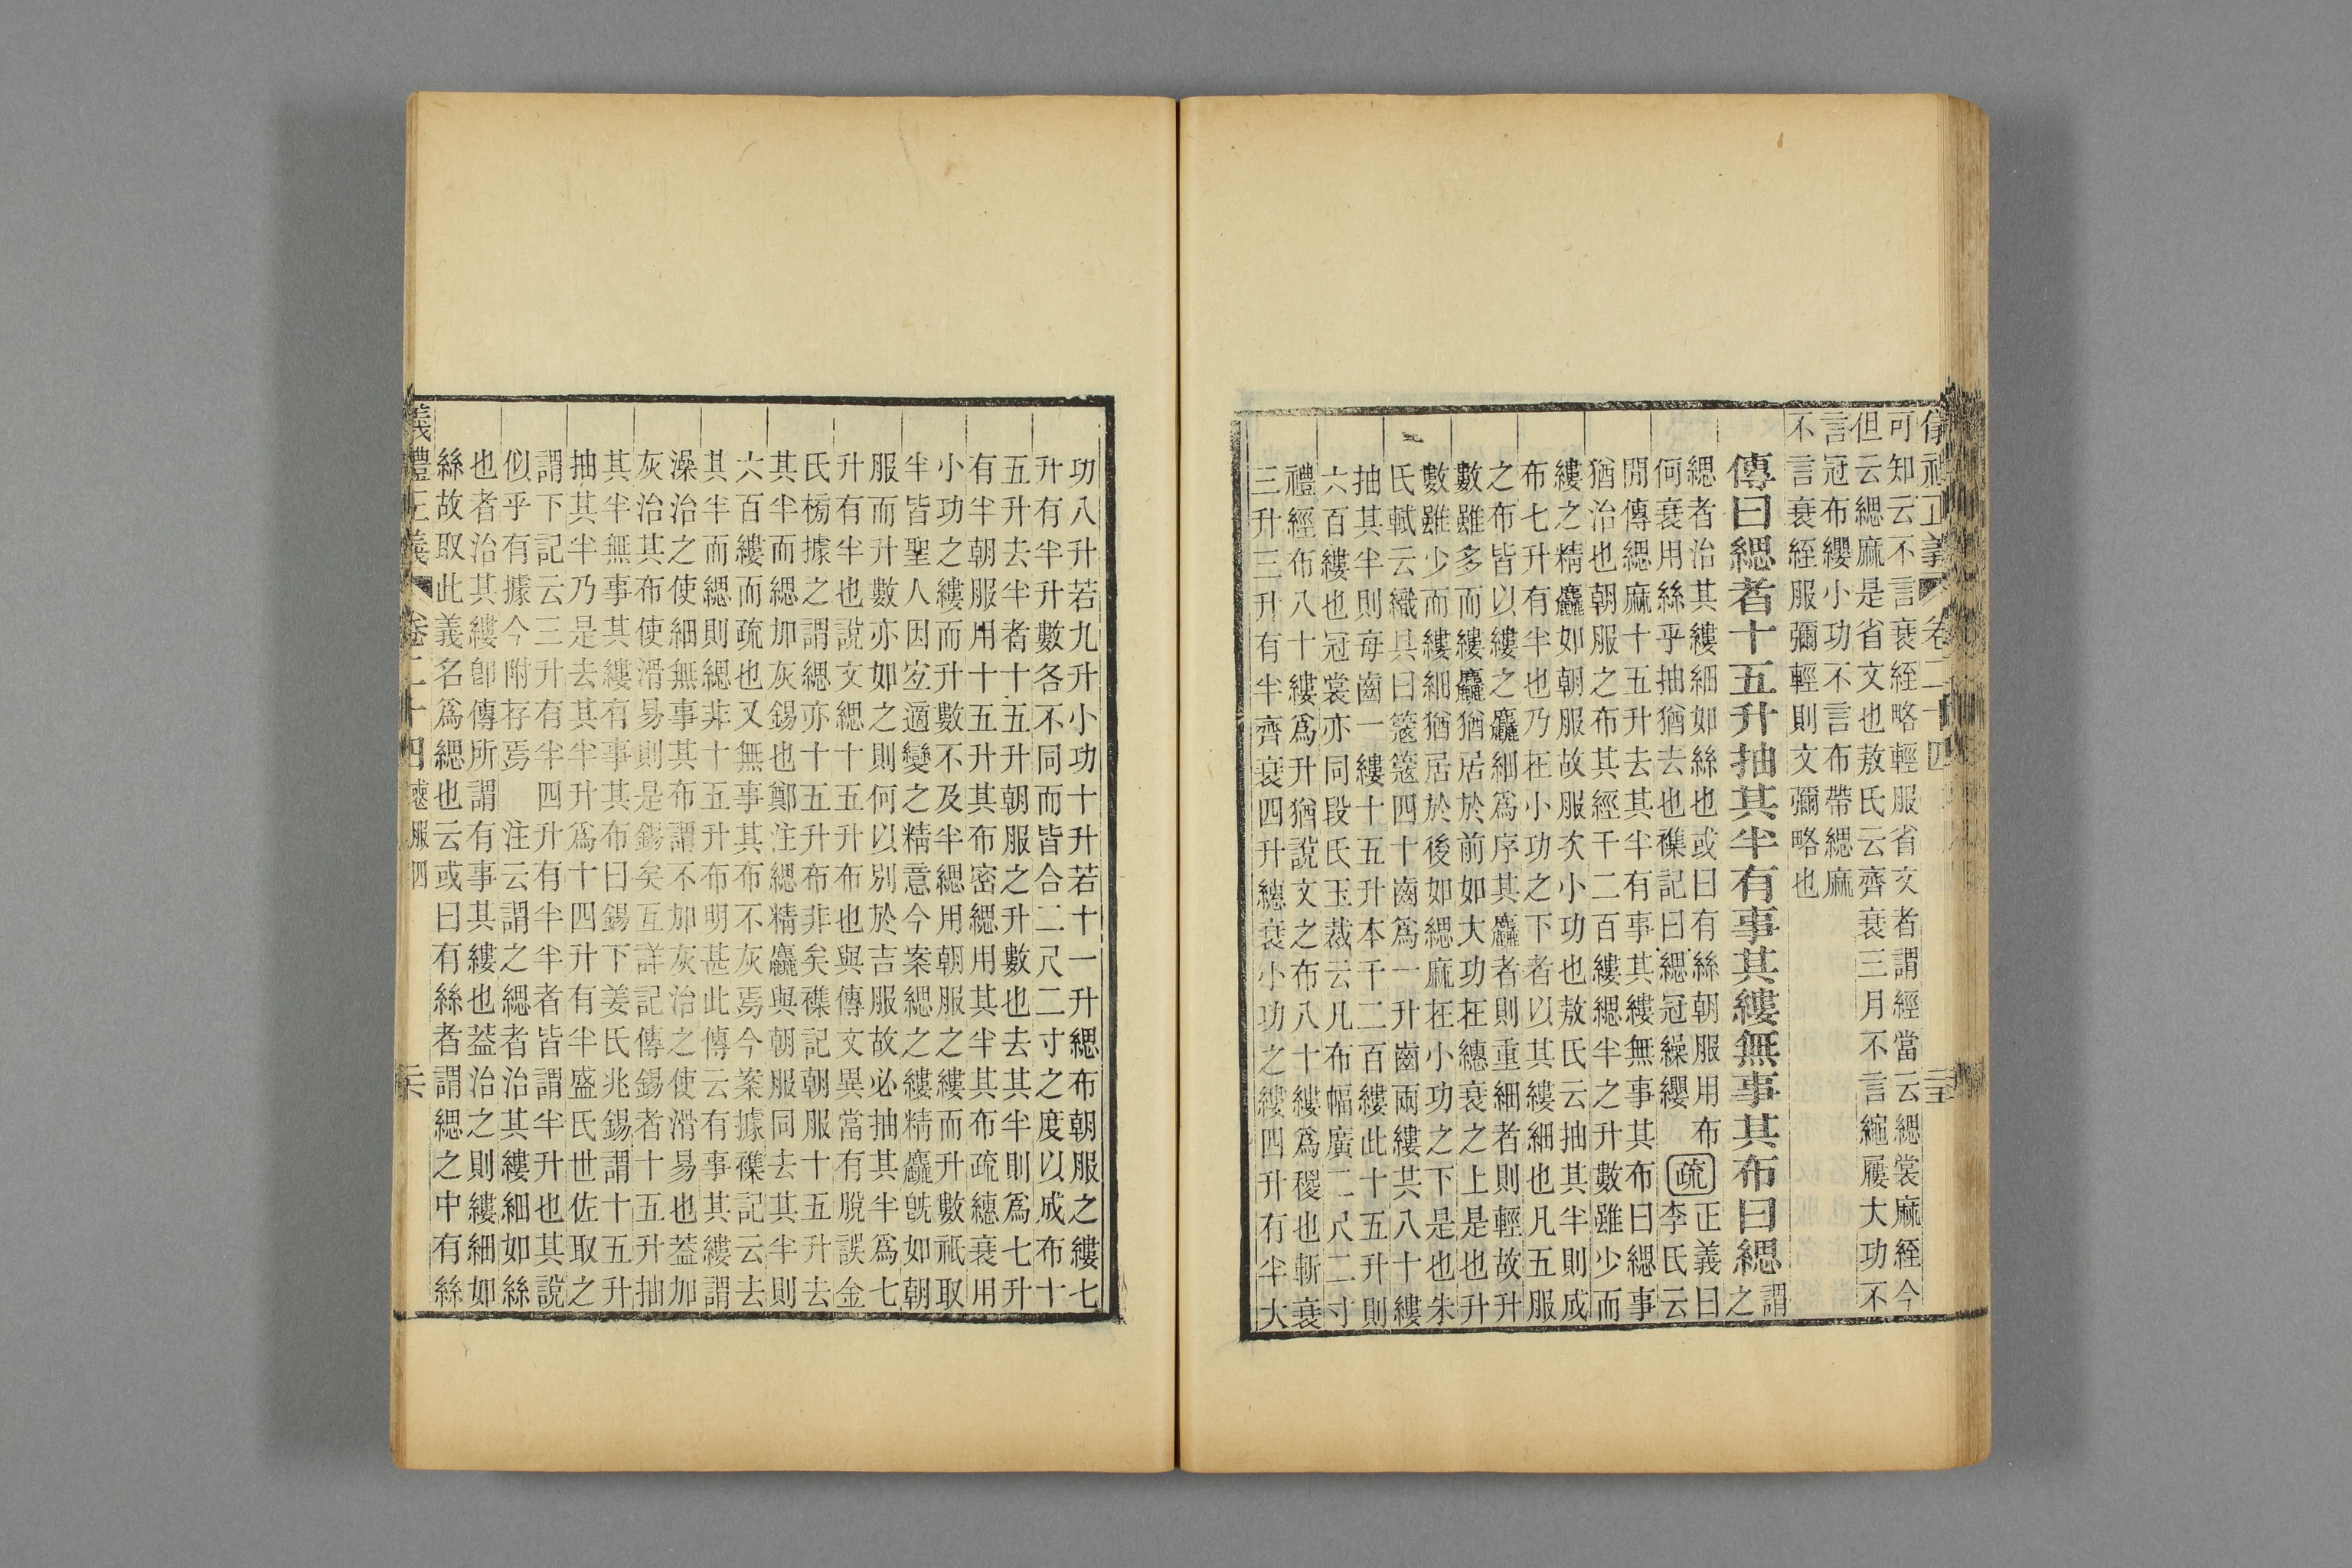 儀禮正義 卷二十四 至
可知云不言衰絰略輕服省文者謂經當云緦裳麻絰今
但云緦麻是省文也敖氏云齊衰三月不言繩屨大功不
言冠布纓小功不言布帶緦麻
不言衰絰服彌輕則文彌略也
傳曰緦者十五升抽其半有事其縷無事其布曰緦謂之
緦者治其縷細如絲也或曰有絲朝服用布
何衰用絲乎抽猶去也襍記曰緦冠繰纓 疏 正義曰李氏云
閒傳緦麻十五升去其半有事其縷無事其布曰緦事
猶治也朝服之布其經千二百縷緦半之升數雖少而
縷之精麤如朝服故服次小功也敖氏云抽其半則成
布七升有半也乃在小功之下者以其縷細也凡五服
之布皆以縷之麤細爲序其麤者則重細者則輕故升
數雖多而縷麤猶居於前如大功在繐衰之上是也升
數雖少而縷細猶居於後如緦麻在小功之下是也朱
氏軾云織具曰簆簆四十齒爲一升齒兩縷共八十縷
抽其半則每齒一縷十五升本千二百縷此十五升則
六百縷也冠裳亦同段氏玉裁云凡布幅廣二尺二寸
禮經布八十縷爲升猶說文之布八十縷爲稯也斬衰
三升三升有半齊衰四升繐衰小功之縷四升有半大
功八升若九升小功十升若十一升緦布朝服之縷七
升有半升數各不同而皆合二尺二寸之度以成布十
五升去半者十五升朝服之升數也去其半則爲七升
有半朝服用十五升其布密緦用其半其布疏繐衰用
小功之縷而升數不及半緦用朝服之縷而升數祇取
半皆聖人因宐適變之精意今案緦之縷精麤旣如朝
服而升數亦如之則何以別於吉服故必抽其半爲七
升有半也說文緦十五升布也與傳文異當有脫誤金
氏榜據之謂緦亦十五升布非矣襍記朝服十五升去
其半而緦加灰錫也鄭注緦精麤與朝服同去其半則
六百縷而疏也又無事其布不灰焉今案據襍記云去
其半而緦則緦非十五升布明甚此傳云有事其縷謂
澡治之使細無事其布謂不加灰治之使滑易也蓋加
灰治其布使滑易則是錫矣互詳記傳錫者十五升抽
其半無事其縷有事其布曰錫下姜氏兆錫謂十五升
抽其半乃是去其半升爲十四升有半盛氏世佐取之
謂下記云三升有半四升有半半者皆謂半升也其說
似乎有據今附存焉 注云謂之緦者治其縷細如絲
也者治其縷卽傳所謂有事其縷也蓋治之則縷細如
絲故取此義名爲緦也云或曰有絲者謂緦之中有絲
儀禮正義 卷二十四 喪服四